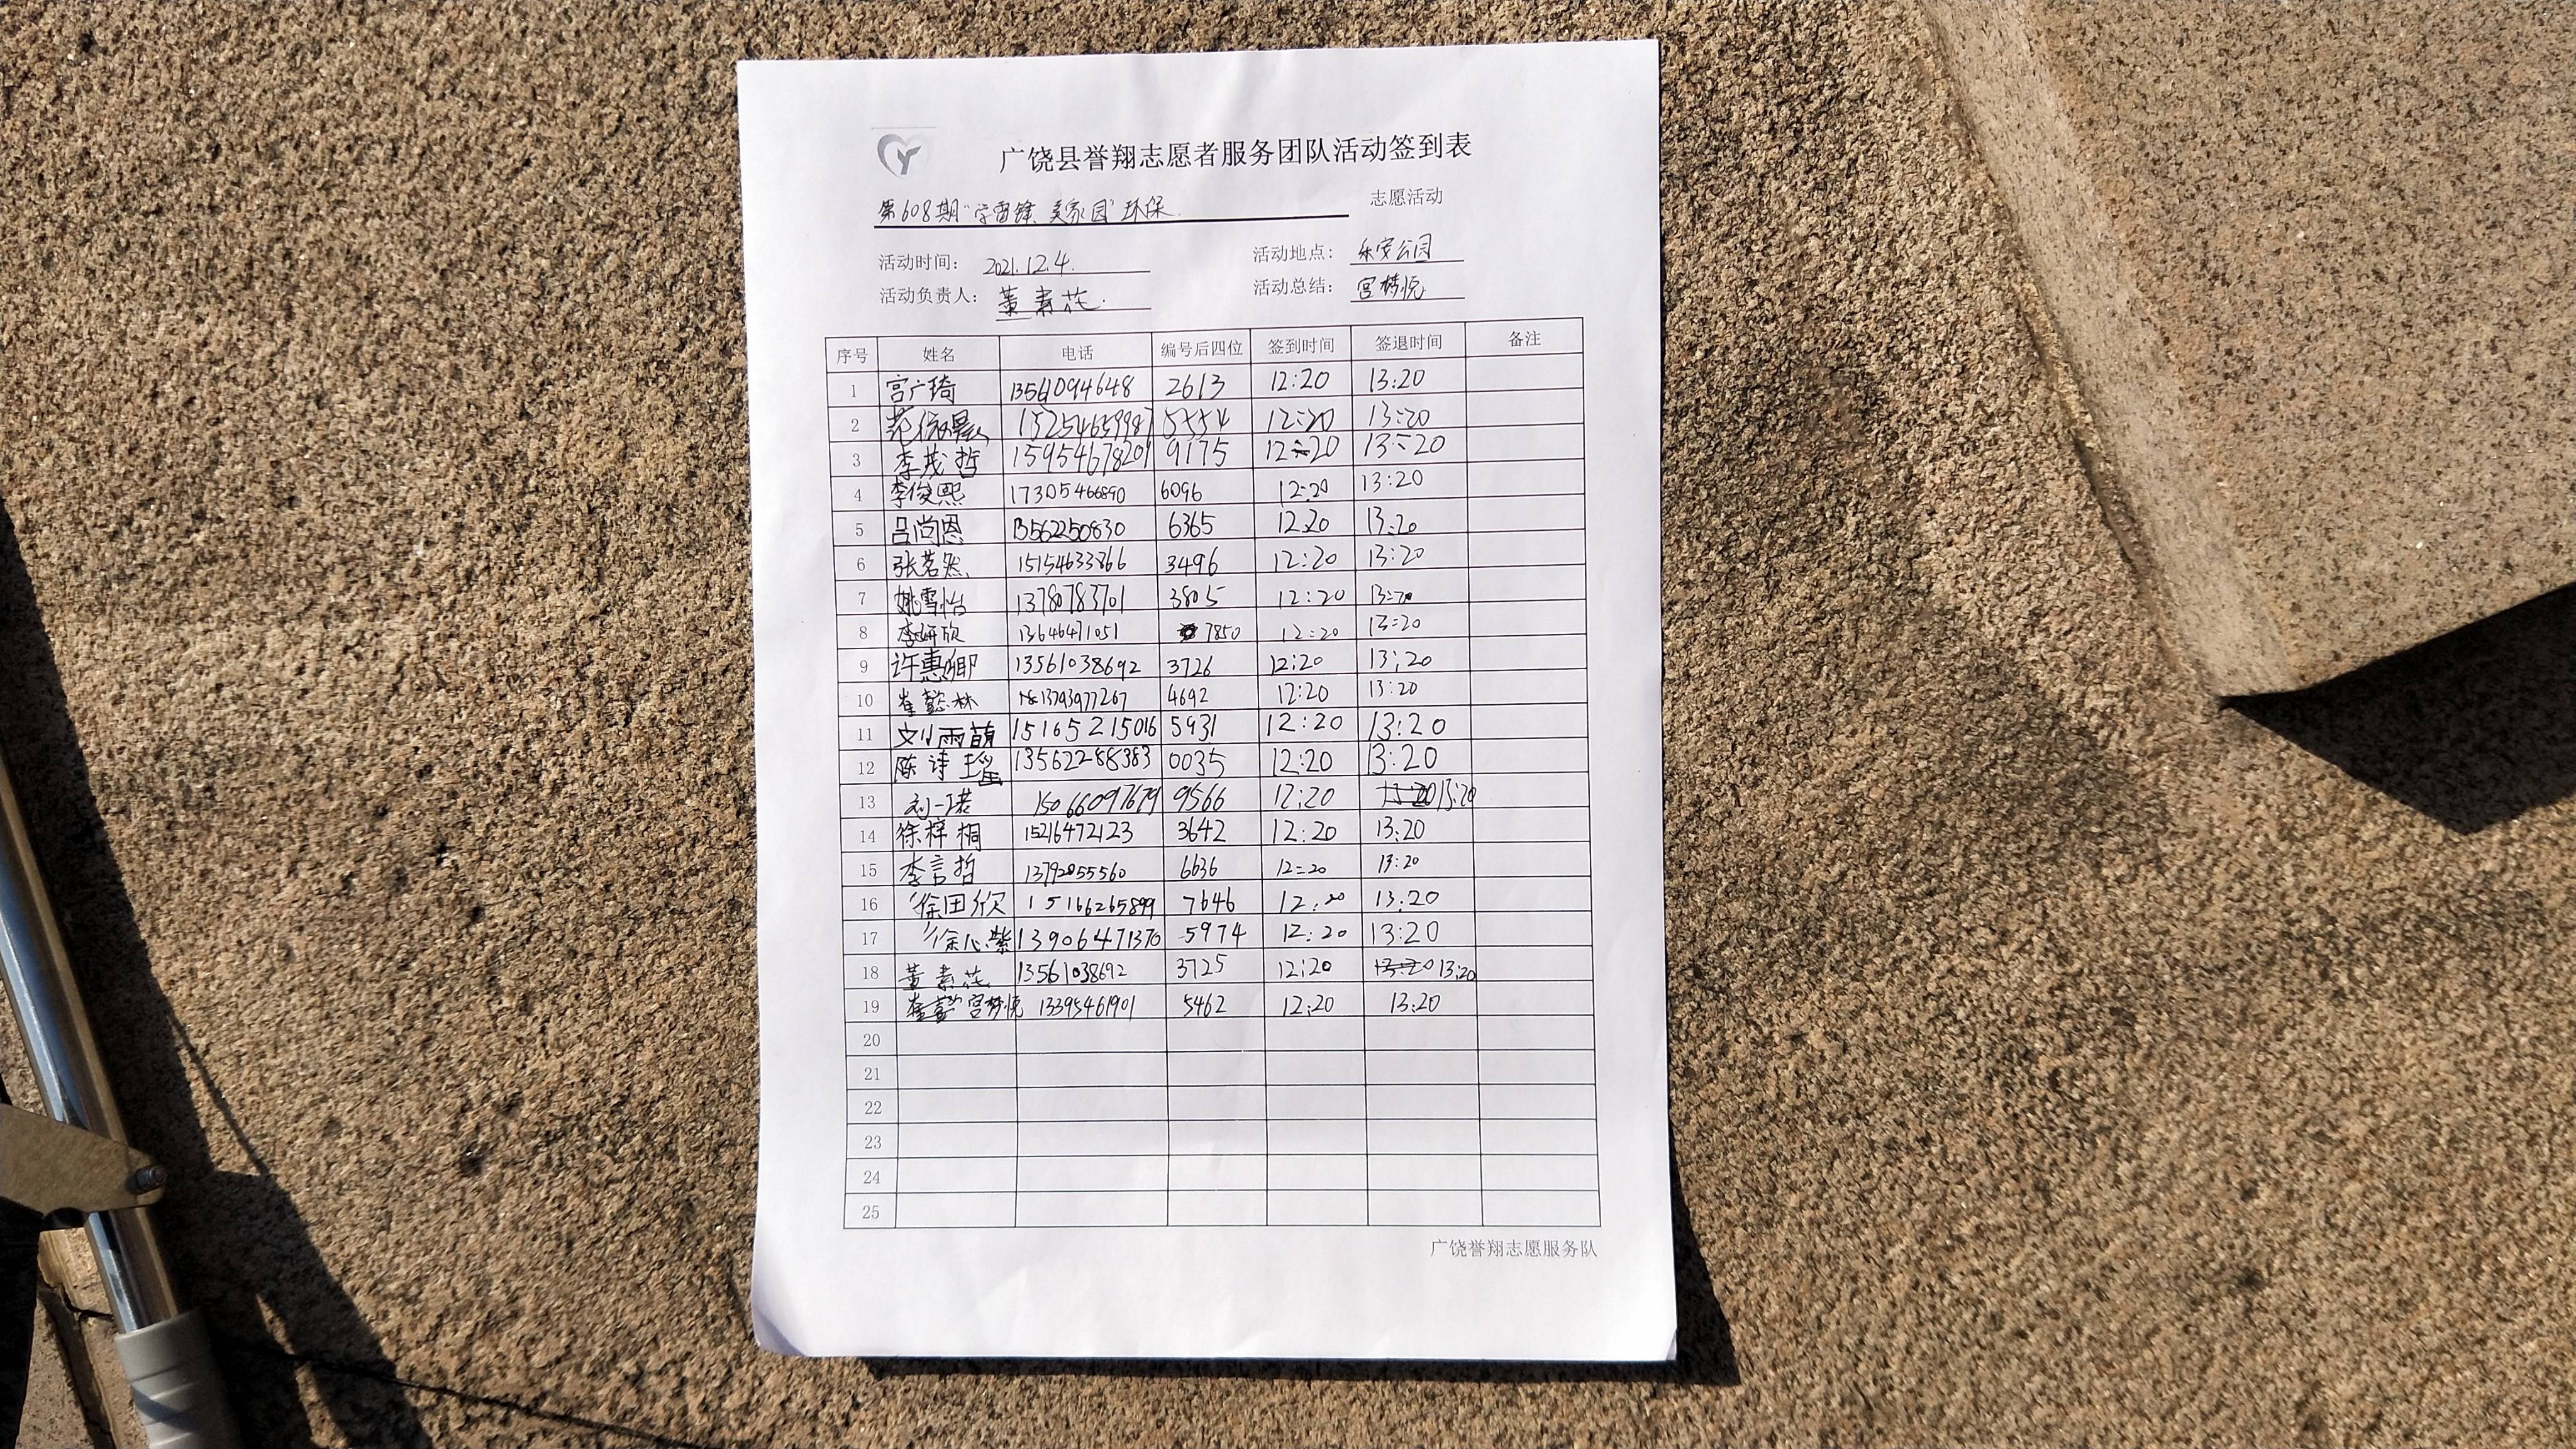 广饶县誉翔志愿者服务团队活动签到表
第608期"学雷锋 美家园"环保 志愿活动
活动时间： 2021.12.4. 活动地点： 乐安公园
活动负责人： 董素花 活动总结： 宫梦悦
序号 姓名 电话 编号后四位 签到时间 签退时间 备注
1 宫广琦 13561094648 2613 12:20 13:20
2 范 15254659987 12:20 13:20
3 李茂哲 15954678201 9175 12:20 13:20
4 李俊熙 17305466890 6096 12:20 13:20
5 吕尚恩 13562250830 6365 12:20 13:20
6 张茗然 15154633866 3496 12:20 13:20
7 姚雪怡 13780783701 3805 12:20 13:20
8 李妍欣 13646471051 7850 12:20 13:20
9 许惠卿 13561038692 3726 12:20 13:20
10 崔懿林 13793977267 4692 12:20 13:20
11 刘雨萌 15165215016 5931 12:20 13:20
12 陈诗瑶 13562288383 0035 12:20 13:20
13 刘一诺 15066097679 9566 12:20 13:20
14 徐梓桐 15216472123 3642 12:20 13:20
15 李言哲 13792055560 6636 12:20 13:20
16 徐田欣 15166265899 7646 12:20 13:20
17 徐心紫 13906471370 5974 12:20 13:20
18 董素花 13561038692 3725 12:20 13:20
19 宫梦悦 13395461901 5462 12:20 13:20
20
21
22
23
24
25
广饶誉翔志愿服务队